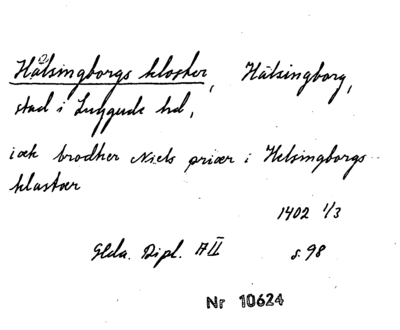 Hälsingborgs kloster, Hälsingborg,
stad i Luggude hd,
iæk brodher Niels priær i Helsingborgs
klastær
1402 1/3
Glda. Dipl. A II s. 98
Nr 10624